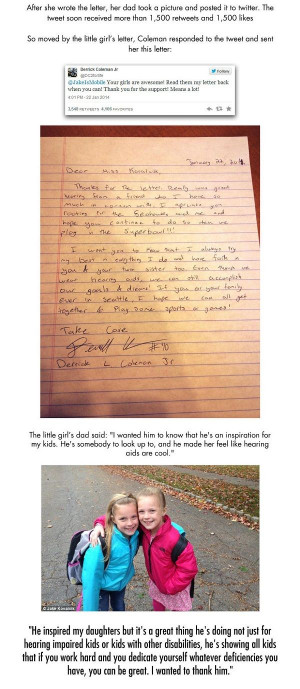 After she wrote the letter, her dad took a picture and posted it to twitter. The
tweet soon received more than 1,500 retweets and 1,500 likes
So moved by the little girl's letter, Coleman responded to the tweet and sent
her this letter:
Derrick Coleman Jr
Follow
@JakeIsMobile Your girls are awesome! Read them my letter back
when you can! Thank you for the support! Means a lot!
4:01 PM - 22 Jan 2014
January 22, 2014
Dear Miss
Thanks for the letter. Really was good
hearing from a friend who I have so
much in common with. I
rooting for the Seahawks and me and
hope you continue to do so when we
play in the Superbowl!!!
I want you to know that I always try
my best in everything I do and have faith in
you & your twin sister too. Even though we
wear hearing aids, we can still accomplish
our goals & dreams! If you or your family
ever in Seattle I hope we can all get
together to play some sports or games!
Take Care
#40
Derrick L. Coleman Jr
The little girl's dad said: "I wanted him to know that he's an inspiration for
my kids. He's somebody to look up to, and he made her feel like hearing
aids are cool."
© Jake Kovalcik
"He inspired my daughters but it's a great thing he's doing not just for
hearing impaired kids or kids with other disabilities, he's showing all kids
that if you work hard and you dedicate yourself whatever deficiencies you
have, you can be great. I wanted to thank him."